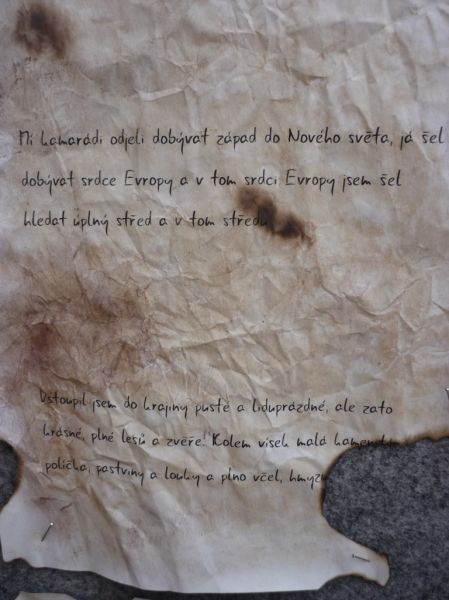 Mí kamarádi odjeli dobývat západ do Nového světa, já šel
dobývat srdce Evropy a v tom srdci Evropy jsem šel
hledat úplný střed a v tom středu
Vstoupil jsem do krajiny pusté a liduprázdné, ale zato
krásné, plné lesů a zvěře. Kolem vísek malá
políčka, pastviny a louky a plno včel,